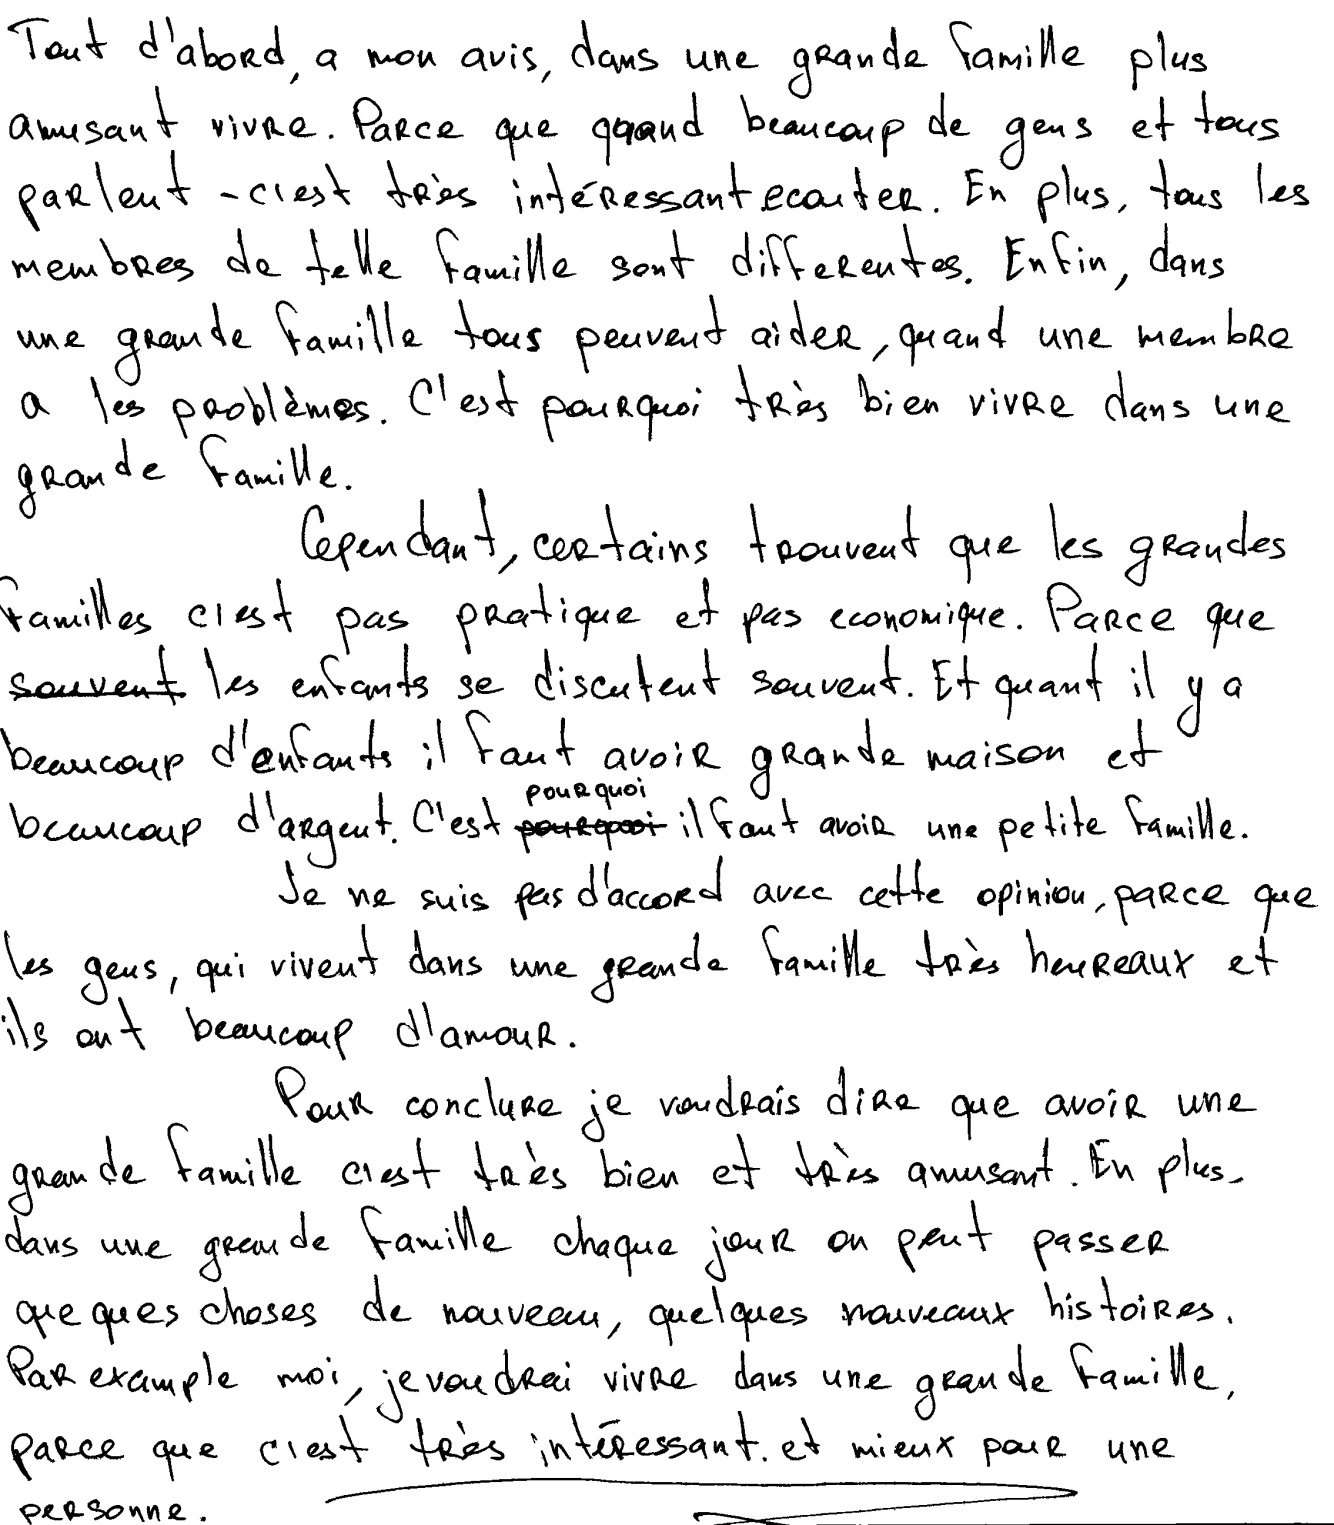 Tout d'abord, a mon avis, dans une grande famille plus
amusant vivre. Parce que quand beaucoup de gens et tous
parlent - c'est très intéressant ecouter. En plus, tous les
membres de telle famille sont differentes. Enfin, dans
une grande famille tous peuvent aider, quand une membre
a les problèmes. C'est pourquoi très bien vivre dans une
grande famille.
Cependant, certains trouvent que les grandes
familles c'est pas pratique et pas economique. Parce que
souvent les enfants se discutent souvent. Et quant il y a
beaucoup d'enfants il faut avoir grande maison et
pourquoi
beaucoup d'argent. C'est pourquoi il faut avoir une petite famille.
Je ne suis pas d'accord avec cette opinion, parce que
les gens, qui vivent dans une grande famille très heureaux et
ils ont beaucoup d'amour.
Pour conclure je voudrais dire que avoir une
grande famille c'est très bien et très amusant. En plus,
dans une grande famille chaque jour on peut passer
queques choses de nouveau, quelques nouveaux histoires.
Par example moi, je voudrai vivre dans une grande famille,
parce que c'est très intéressant. et mieux pour une
personne.